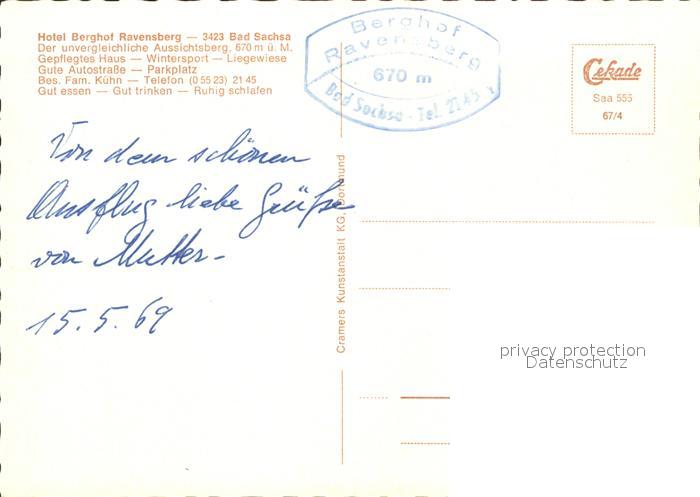 Hotel Berghof Ravensberg — 3423 Bad Sachsa
Der unvergleichliche Aussichtsberg, 670 m ü. M.
Gepflegtes Haus — Wintersport — Liegewiese
Gute Autostraße — Parkplatz
Bes. Fam. Kühn — Telefon (0 55 23) 21 45
Gut essen — Gut trinken — Ruhig schlafen
Berghof
Ravensberg
670 m
Bad Sachsa - Tel. 21 45
Cekade
Saa 555
67/4
Von dem schönen
Ausflug liebe Grüße
von Mutter-
15. 5. 69
Cramers Kunstanstalt KG, Dortmund
privacy protection
Datenschutz